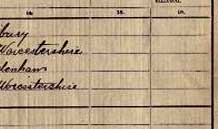 14. 15. 16.
bury
Worcestershire
denham
Worcestershire